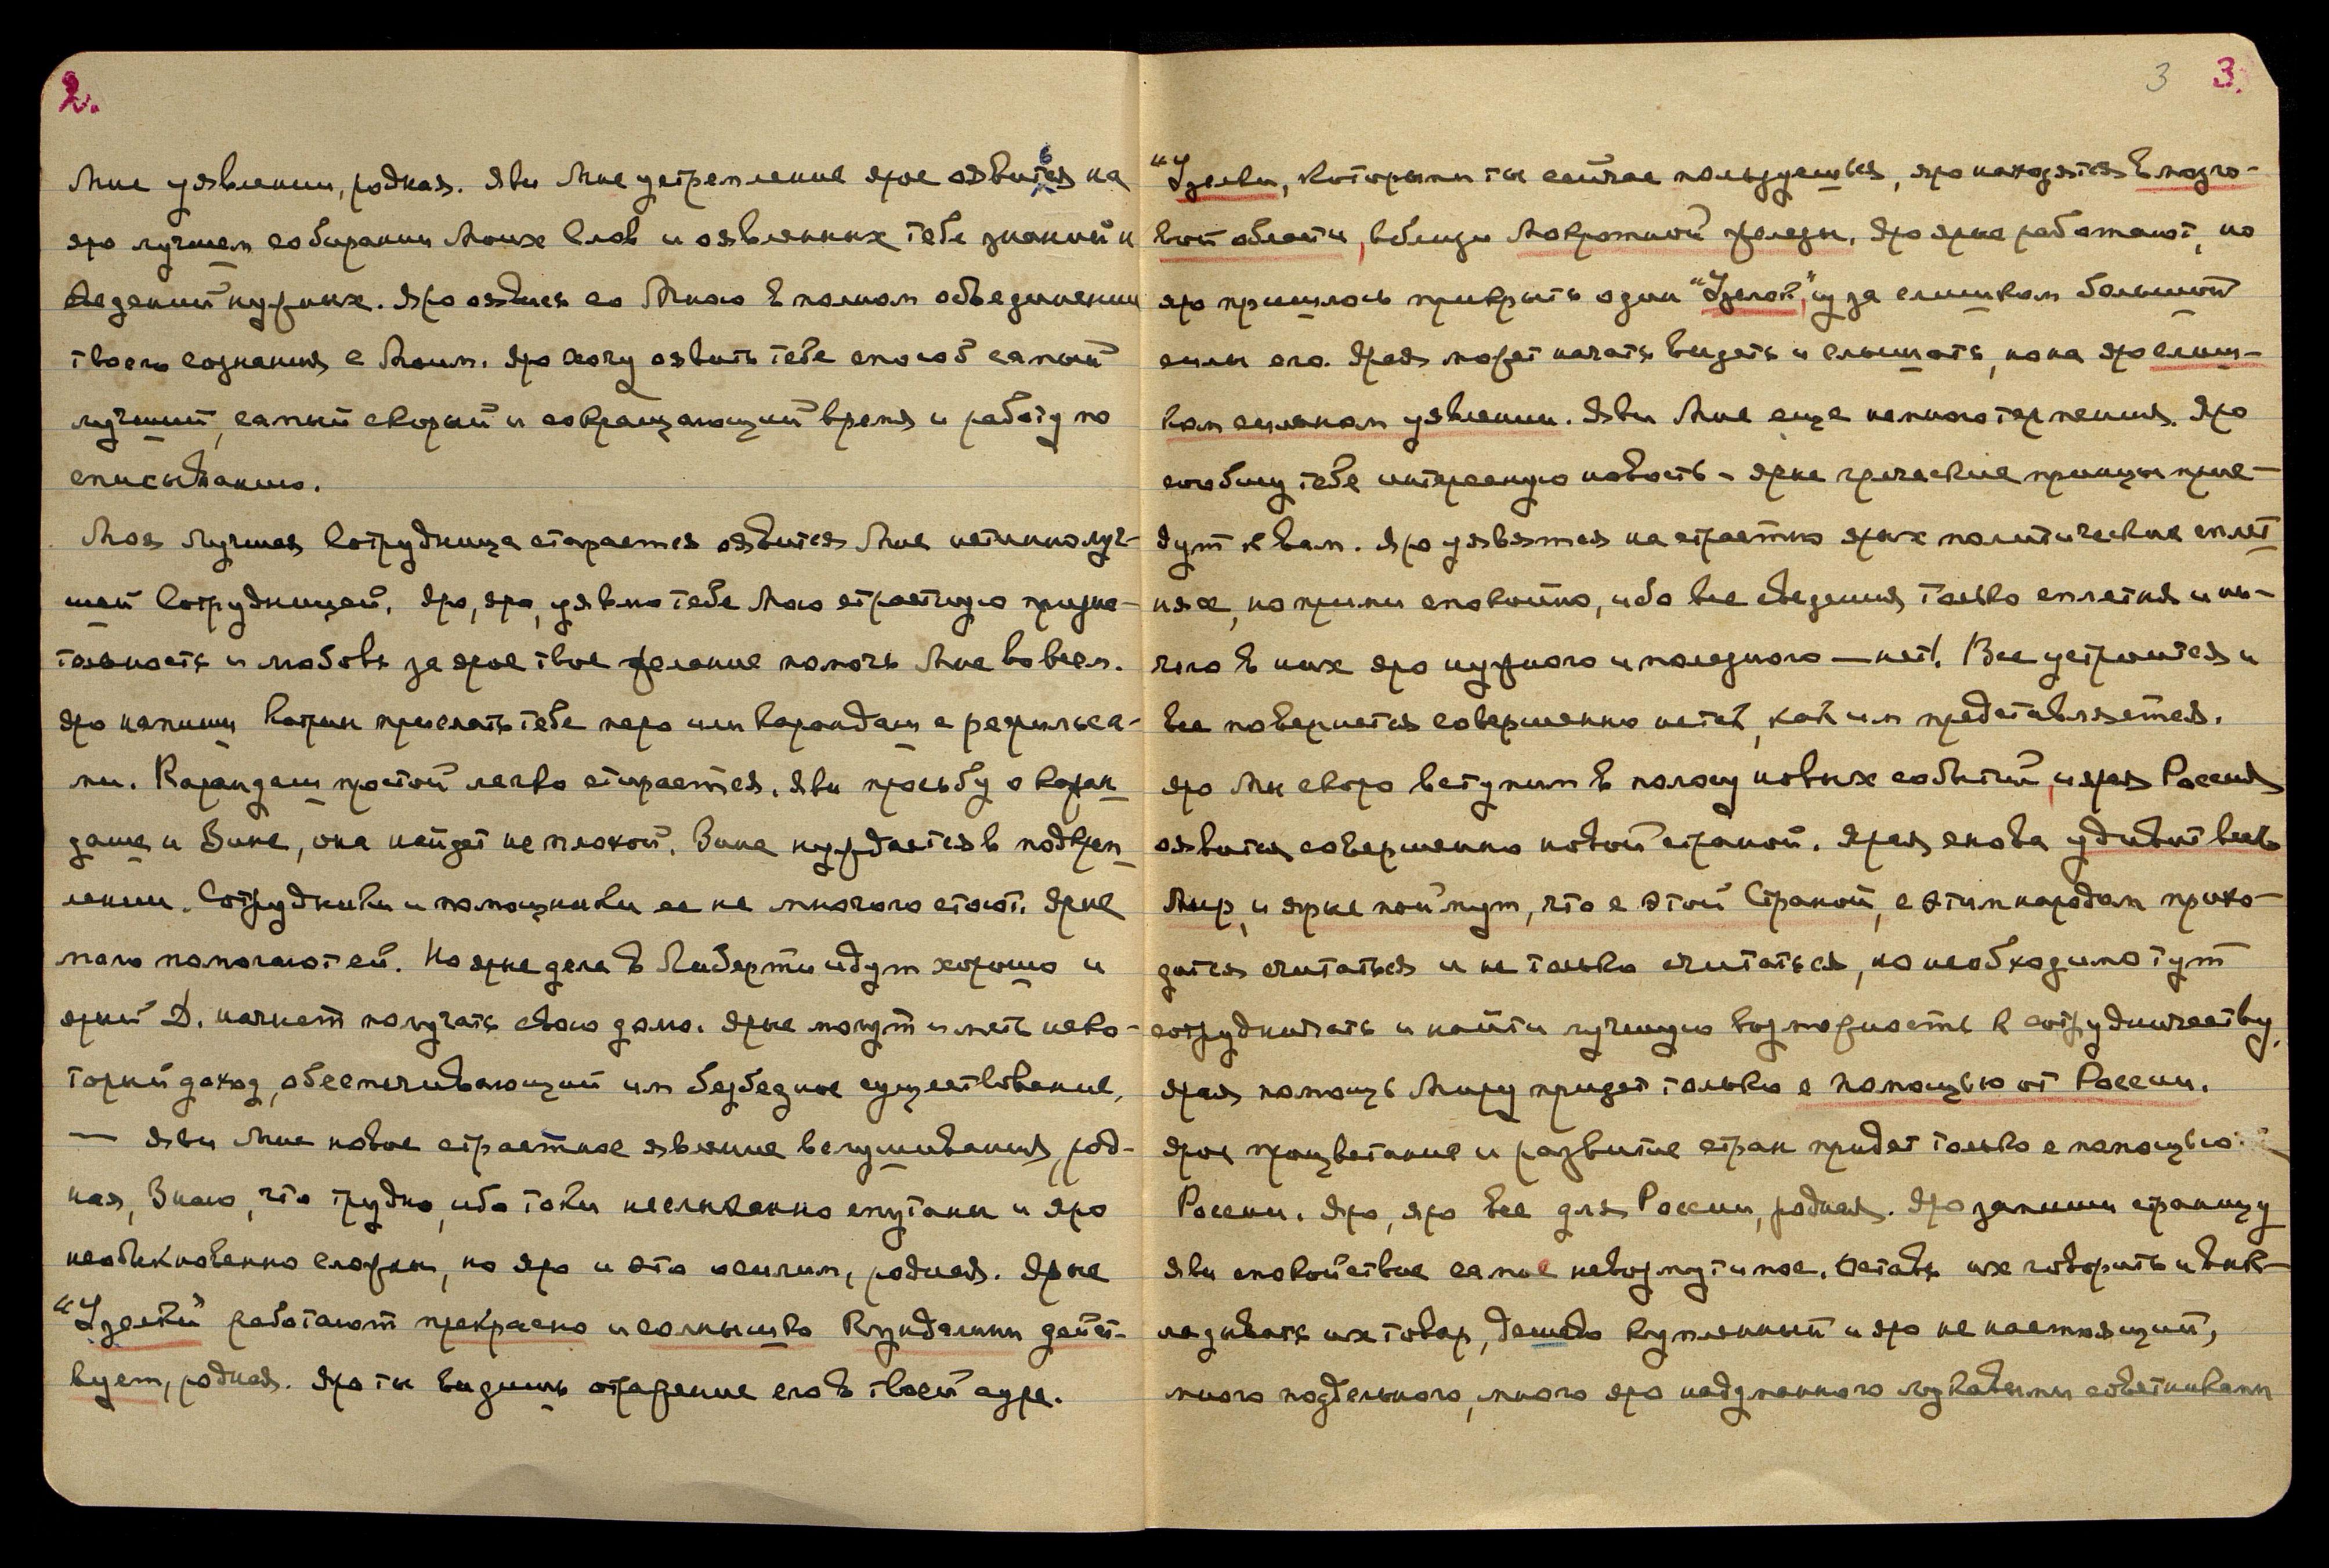 2.
Мне уявлении, родная. Яви Мне устремление ярое оявиться на
яро лучшем собирании Моих Слов и оявленных тебе знаний и
ведений нужных. Яро оявись со Мною в полном объединении
твоего сознания с Моим. Яро Хочу оявить тебе способ самый
лучший, самый скорый и сокращающий время и работу по
списыванию.
Моя лучшая Сотрудница старается оявится Мне истинно луч-
шей Сотрудницей. Яро, яро, уявлю тебе Мою страстную призна-
тельность и любовь за ярое твое желание помочь Мне во всем.
Яро напиши Катрин прислать тебе перо или карандаш с рефильса-
ми. Карандаш простой легко стирается. Яви просьбу о каран
даше и Зине, она найдет не плохой. Зина нуждается в подкреп
лении. Сотрудники и помощники ее не многого стоют. Яркие
мало помогают ей. Но ярые дела в Либерти идут хорошо и
ярый Д. начнет получать свою долю. Ярые могут иметь неко-
торый доход, обеспечивающий им безбедное существование,
— Яви Мне новое страстное явление вслушивания, род-
ная, Знаю, что трудно, ибо токи несказанно спутаны и яро
необыкновенно сложны, но яро и это осилим, родная. Ярые
"Узелки" работают прекрасно и солнышко Кундалини дейст-
вует, родная. Яро ты видишь отражение его в твоей ауре.
3 3.
"Узелки, которыми ты сейчас пользуешься, яро находятся в мозго-
вой области, вблизи Мокротной железы. Яро ярые работают, но
яро пришлось прикрыть один "Узелок," из за слишком большой
силы его. Ярая может начать видеть и слышать, пока яро слиш-
ком сильном уявлении. Яви Мне еще немного терпения. Яро
сообщу тебе интересную новость - ярые греческие принцы прие-
дут к вам. Яро уявятся на страстно ярых политические сплет
нях, но прими спокойно, ибо все сведения только сплетня и ни-
чего в них яро нужного и полезного — нет!. Все устроится и
все повернется совершенно не так, как им представляется.
Яро Мы скоро вступим в полосу новых событий, и ярая Россия
оявится совершенно новой страной. Ярая снова удивит весь
Мир, и ярые поймут, что с этой Страной, с этим народом прихо-
дится считаться и не только считаться, но необходимо тут
сотрудничать и найти лучшую возможность к сотрудничеству,
ярая помощь Миру придет только с помощью от России.
Ярое процветание и развитие стран придет только с помощью
России. Яро, яро все для России, родная. Яро запиши страницу
яви спокойствие самое невозмутимое. Оставь их говорить и вык-
ладывать их товар, дешево купленный и яро не настоящий,
много поддельного, много яро надуманного лукавыми советниками